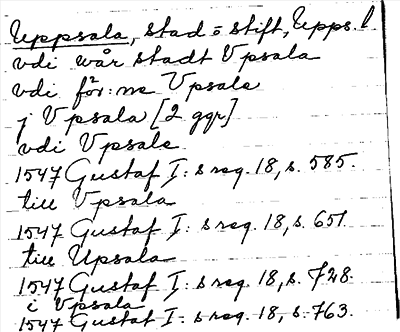 Uppsala, stad o stift, Upps. l
vdi wår stadt Vpsala
vdi för:ne Vpsale
j Vpsala [2 ggr]
vdi Vpsale
1547 Gustaf I:s reg. 18, s. 585.
till Vpsala
1547 Gustaf I:s reg. 18, s. 651
till Upsala
1547 Gustaf I:s reg. 18, s. 728.
i Vpsala
1547 Gustaf I:s reg. 18, s. 763.